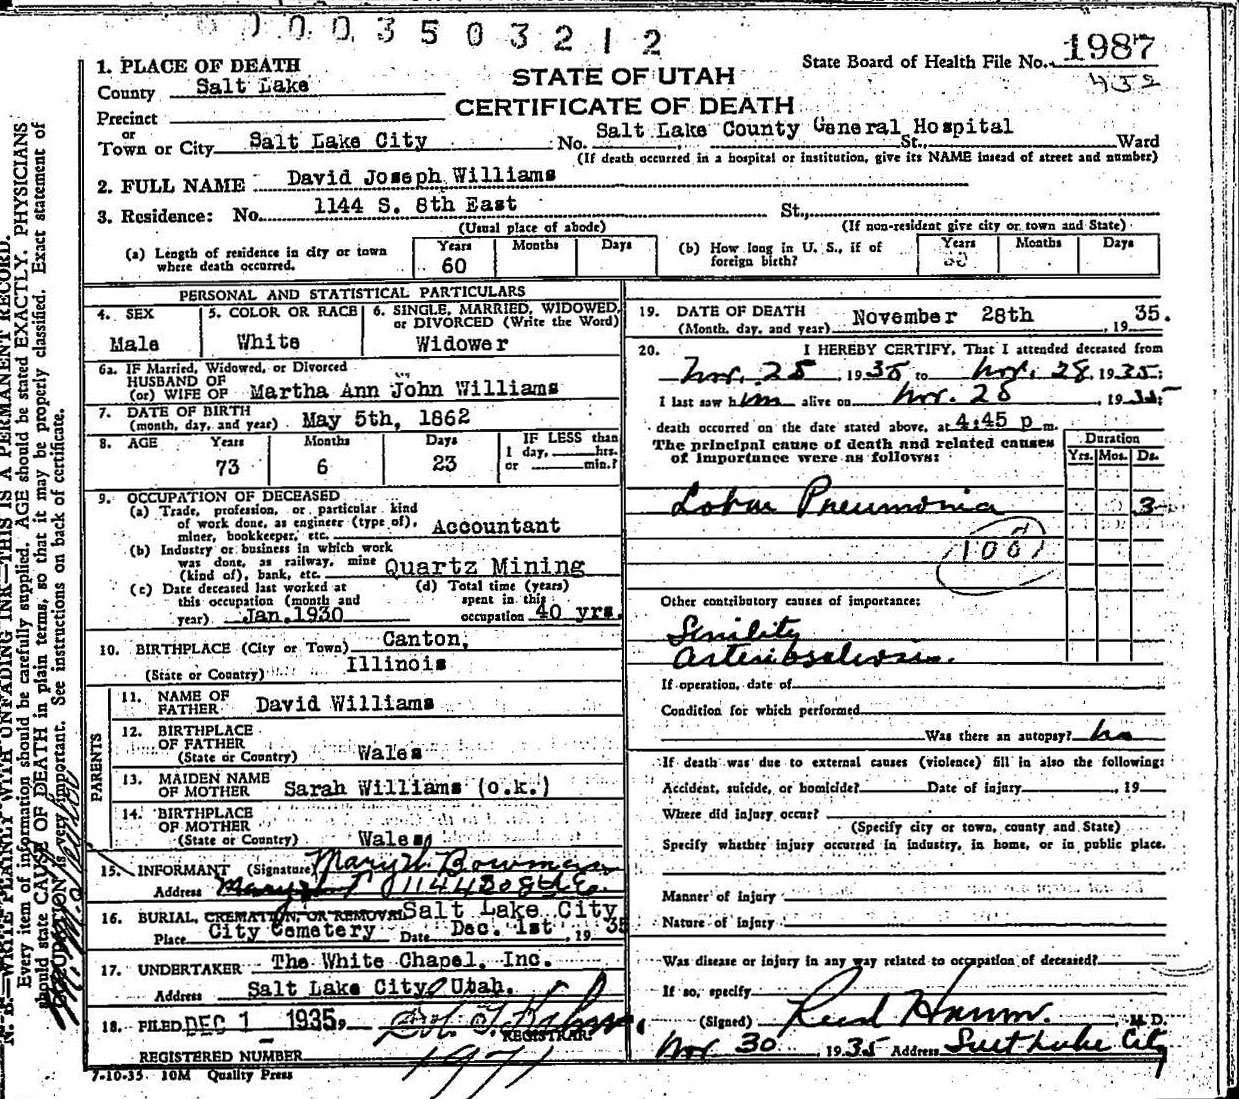 0003503212
1987
State Board of Health File No.
432
STATE OF UTAH
CERTIFICATE OF DEATH
1. PLACE OF DEATH
County Salt Lake
Precinct
or
Town or City Salt Lake City No. Salt Lake County General Hospital St., Ward
(If death occurred in a hospital or institution, give its NAME instead of street and number)
2. FULL NAME David Joseph Williams
3. Residence: No. 1144 S. 8th East St.,
(Usual place of abode) (If non-resident give city or town and State)
(a) Length of residence in city or town where death occurred. Years 60 Months Days
(b) How long in U. S., if of foreign birth? Years Months Days
PERSONAL AND STATISTICAL PARTICULARS
4. SEX Male
5. COLOR OR RACE White
6. SINGLE, MARRIED, WIDOWED, or DIVORCED (Write the Word) Widower
6a. IF Married, Widowed, or Divorced
HUSBAND OF
(or) WIFE OF Martha Ann John Williams
7. DATE OF BIRTH
(month, day, and year) May 5th, 1862
8. AGE Years 73 Months 6 Days 23 IF LESS than 1 day, hrs. or min.?
9. OCCUPATION OF DECEASED
(a) Trade, profession, or particular kind
of work done, as engineer (type of),
miner, bookkeeper, etc. Accountant
(b) Industry or business in which work
was done, as railway, mine
(kind of), bank, etc. Quartz Mining
(c) Date deceased last worked at
this occupation (month and
year) Jan. 1930
(d) Total time (years)
spent in this
occupation 40 yrs.
10. BIRTHPLACE (City or Town) Canton,
(State or Country) Illinois
PARENTS
11. NAME OF
FATHER David Williams
12. BIRTHPLACE
OF FATHER
(State or Country) Wales
13. MAIDEN NAME
OF MOTHER Sarah Williams (o.k.)
14. BIRTHPLACE
OF MOTHER
(State or Country) Wales
15. INFORMANT (Signature) Mary W. Bowman
Address 1144 So 8th E.
16. BURIAL, CREMATION, OR REMOVAL Salt Lake City
Place City Cemetery Date Dec. 1st, 1935
17. UNDERTAKER The White Chapel. Inc.
Address Salt Lake City Utah.
18. FILED DEC 1 1935
REGISTRAR
REGISTERED NUMBER 1971
7-10-35 10M Quality Press
19. DATE OF DEATH
(Month, day, and year) November 28th, 1935.
20. I HEREBY CERTIFY, That I attended deceased from
Nov. 25, 1935 to Nov. 28, 1935;
I last saw him alive on Nov. 28, 1935;
death occurred on the date stated above, at 4:45 p m.
The principal cause of death and related causes
of importance were as follows:
Duration
Yrs. Mos. Ds.
Lobar Pneumonia 3
108
Other contributory causes of importance:
Senility
Arteriosclerosis.
If operation, date of
Condition for which performed
Was there an autopsy? no
If death was due to external causes (violence) fill in also the following:
Accident, suicide, or homicide? Date of injury, 19
Where did injury occur?
(Specify city or town, county and State)
Specify whether injury occurred in industry, in home, or in public place.
Manner of injury
Nature of injury
Was disease or injury in any way related to occupation of deceased?
If so, specify
(Signed) Reed Harrow. M. D.
Nov 30, 1935 Address Salt Lake City
N. B.—WRITE PLAINLY WITH UNFADING INK—THIS IS A PERMANENT RECORD.
Every item of information should be carefully supplied. AGE should be stated EXACTLY. PHYSICIANS
should state CAUSE OF DEATH in plain terms, so that it may be properly classified. Exact statement of
OCCUPATION is very important. See instructions on back of certificate.